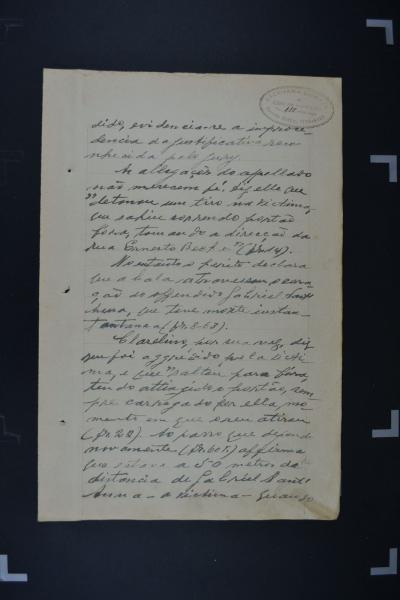 dido, evidencia-se a improce-
dencia da justificativa reco-
nhecida pelo jury.
As allegações do apellado
não merecem fé. Diz elle que
"detonou um tiro na victima,
que sahiu correndo portão
fora, tomando a direcção da
rua Ernesto
No entanto o perito declara
que a bala atravessou o cora-
ção do offendido Gabriel Sant'
Anna, que teve morte instan-
tanea (fs.
Clarelino, por sua vez, diz
que foi aggredido pela victi-
ma, e que saltou para fóra,
tendo attingido o portão, sem-
pre carregado por ella, mo-
mento em que
(fs. Ao passo que depondo
novamente affirma
que estava a 50 metros de
distancia de Gabriel Sant'
Anna - a victima - quando